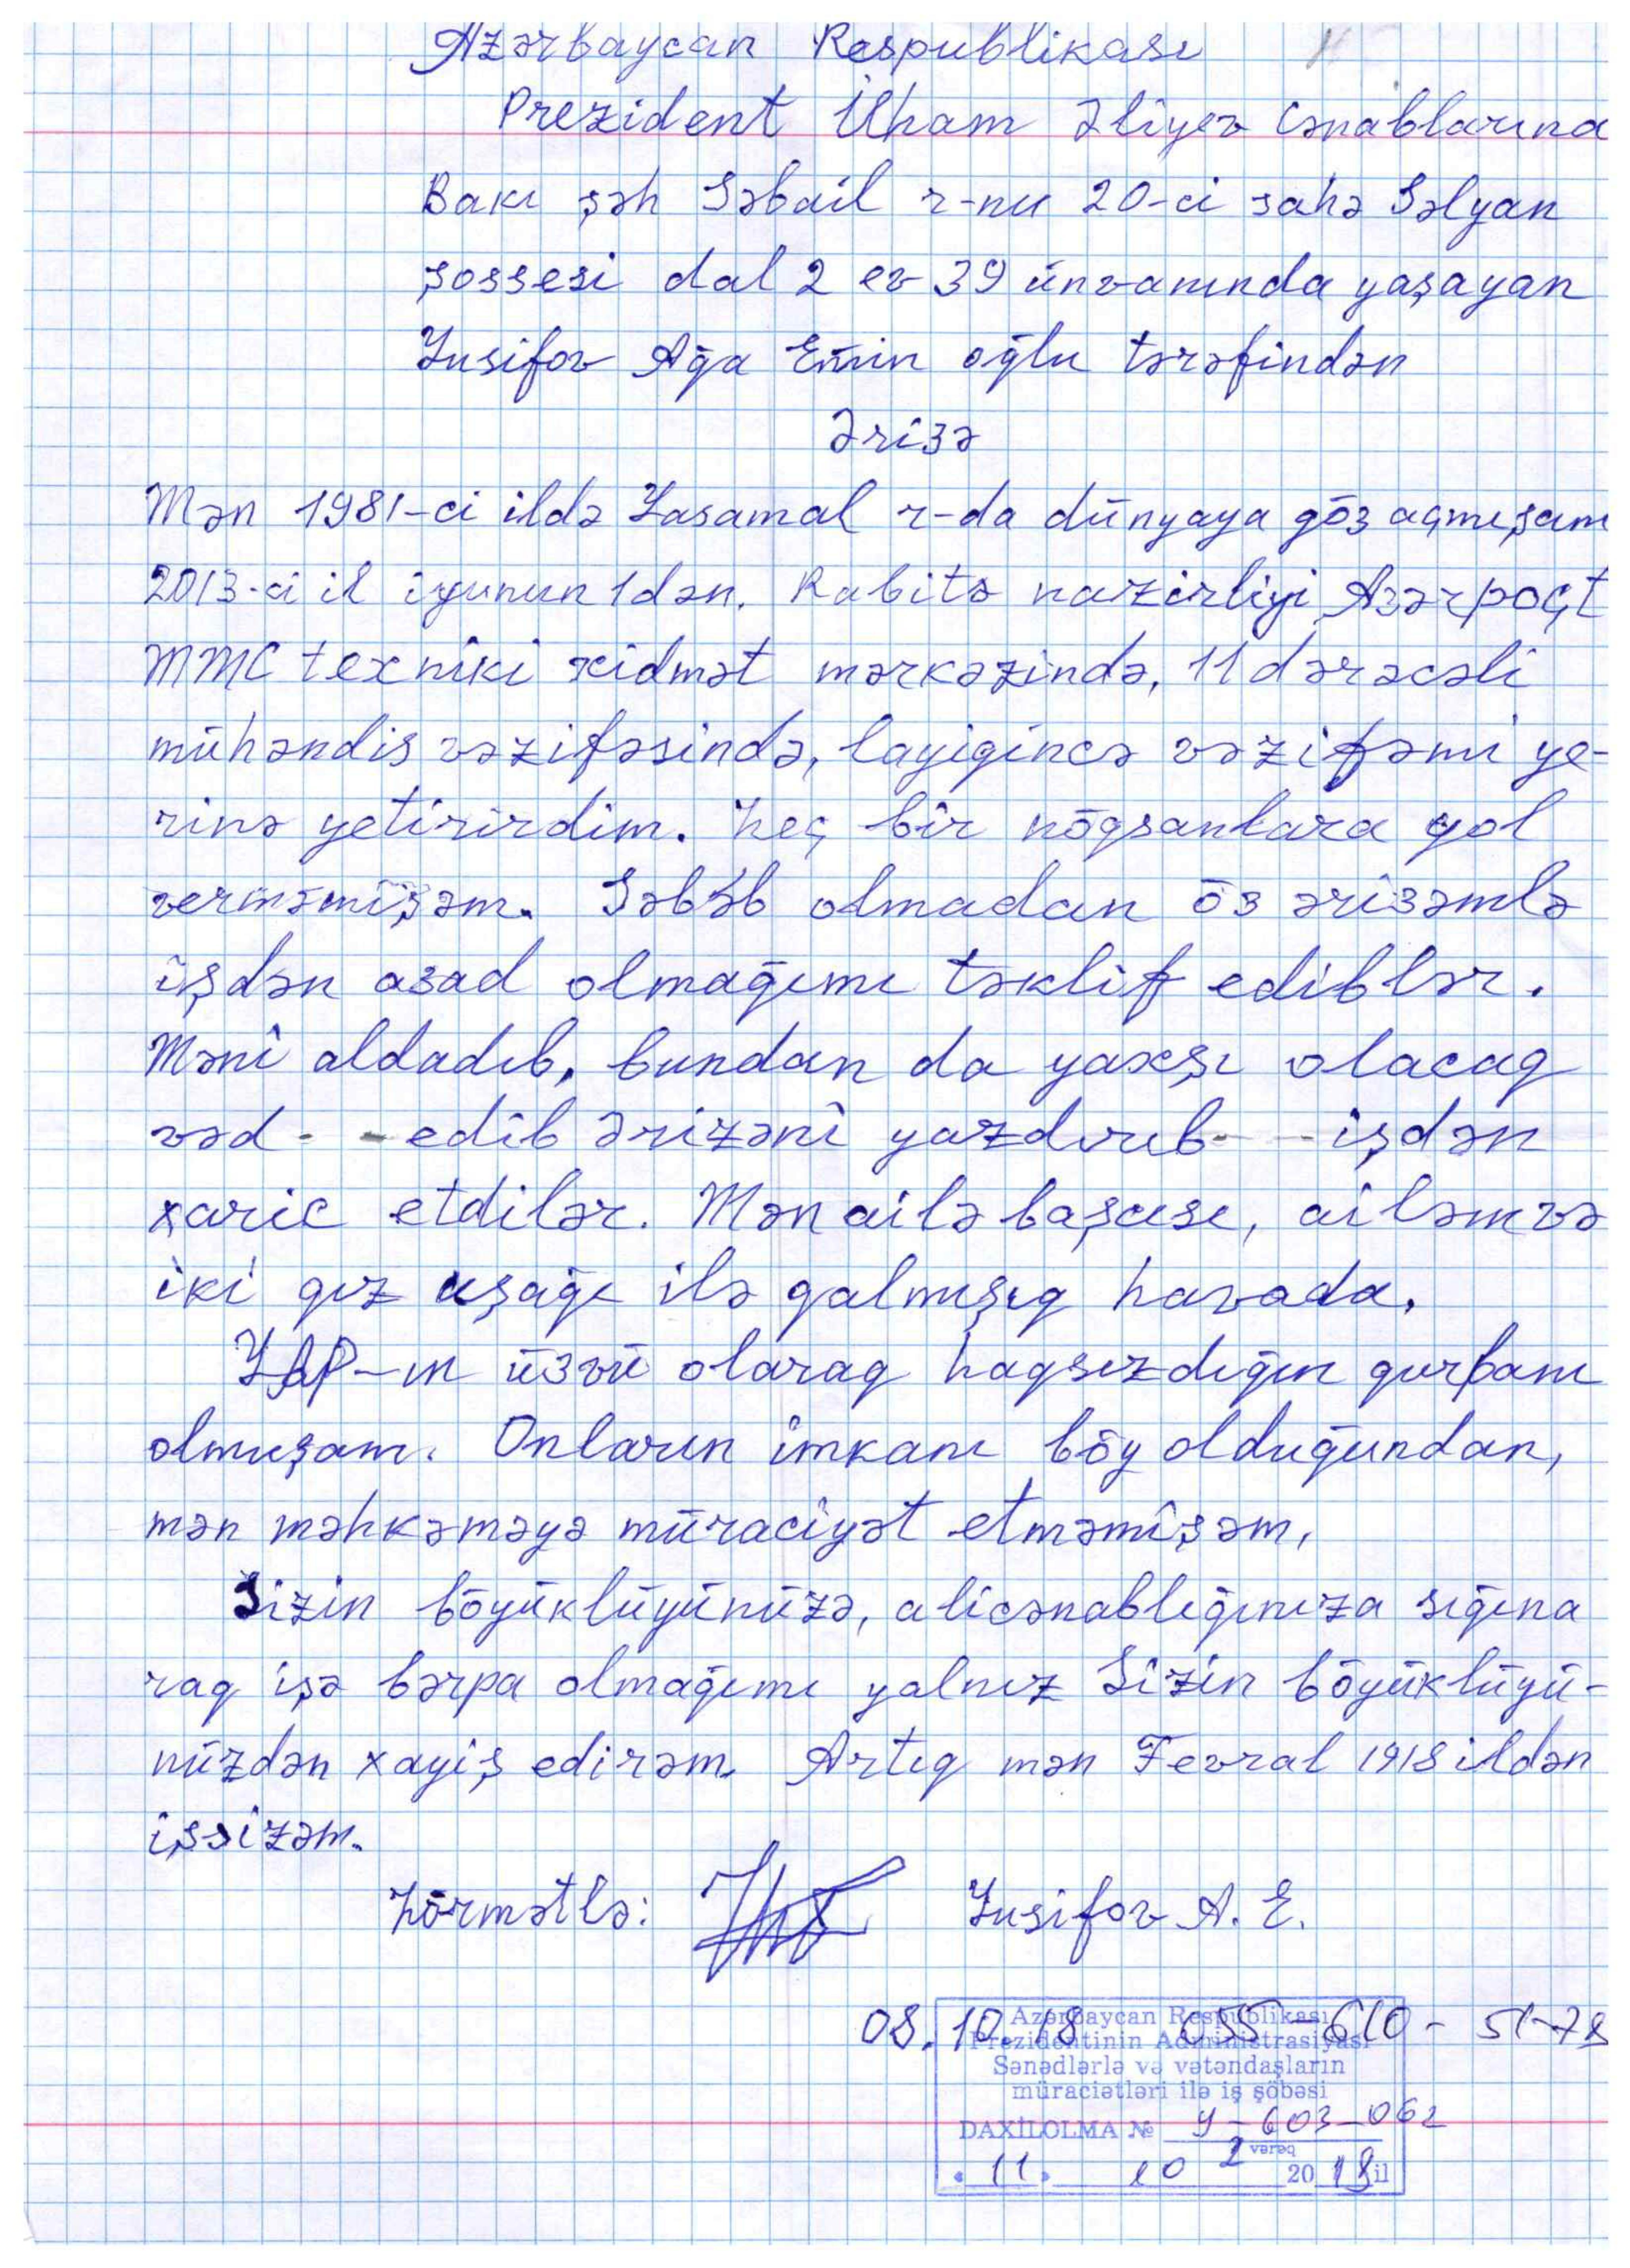 Azərbaycan Respublikası
Prezident İlham Əliyev Cənablarına
Bakı şəh Səbail r-nu 20-ci sahə Salyan
şossesi dal 2 ev 39 ünvanında yaşayan
Yusifov Ağa Emin oğlu tərəfindən
Ərizə
Mən 1981-ci ildə Yasamal r-da dünyaya göz açmışam
2013-ci il iyunun 1dən. Rabitə nazirliyi Azərpoçt
MMC texniki xidmət mərkəzində, 11 dərəcəli
mühəndis vəzifəsində, layiqincə vəzifəmi ye-
rinə yetirirdim. Heç bir nöqsanlara yol
verməmişəm. Səbəb olmadan öz ərizəmlə
işdən azad olmağımı təklif ediblər.
Məni aldadıb, bundan da yaxşı olacaq
vəd - - edib ərizəni yazdırıb - - işdən
xaric etdilər. Mən ailə başçısı, ailəm və
iki qız uşağı ilə qalmışıq havada.
YAP-ın üzvü olaraq haqsızdığın qurbanı
olmuşam. Onların imkanı böy olduğundan,
mən məhkəməyə müraciyət etməmişəm,
Sizin böyüklüyünüzə, alicənablığınıza sığına
raq işə bərpa olmağımı yalnız Sizin böyüklüyü-
nüzdən xayiş edirəm. Artıq mən Fevral 1918 ildən
işsizəm.
Hörmətlə: Yusifov A. E.
08.10.18 055-610-51-78
Azərbaycan Respublikası
Prezidentinin Administrasiyası
Sənədlərlə və vətəndaşların
müraciətləri ilə iş şöbəsi
DAXİLOLMA № Y-603-062
2 vərəq
« 11 » 10 2018 il